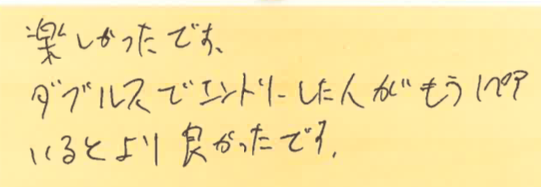 楽しかったです、
ダブルスでエントリーした人がもう1ペア
いるとより良かったです.